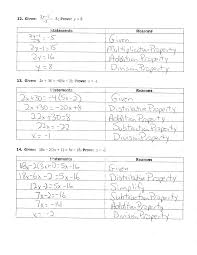 12. Given: 2y-1/3 = 5; Prove: y = 8
Statements Reasons
2y-1/3 = 5 Given
2y-1=15 Multiplication Property
2y=16 Addition Property
y=8 Division Property
13. Given: 2x + 30 = -4(5x - 2); Prove: x = -1
Statements Reasons
2x+30=-4(5x-2) Given
2x+30=-20x+8 Distributive Property
22x+30=8 Addition Property
22x=-22 Subtraction Property
x=-1 Division Property
14. Given: 18x - 2(3x + 1) = 5x - 16; Prove: x = -2
Statements Reasons
18x-2(3x+1)=5x-16 Given
18x-6x-2=5x-16 Distributive Property
12x-2=5x-16 Simplify
7x-2=-16 Subtraction Property
7x=-14 Addition Property
x=-2 Division Property